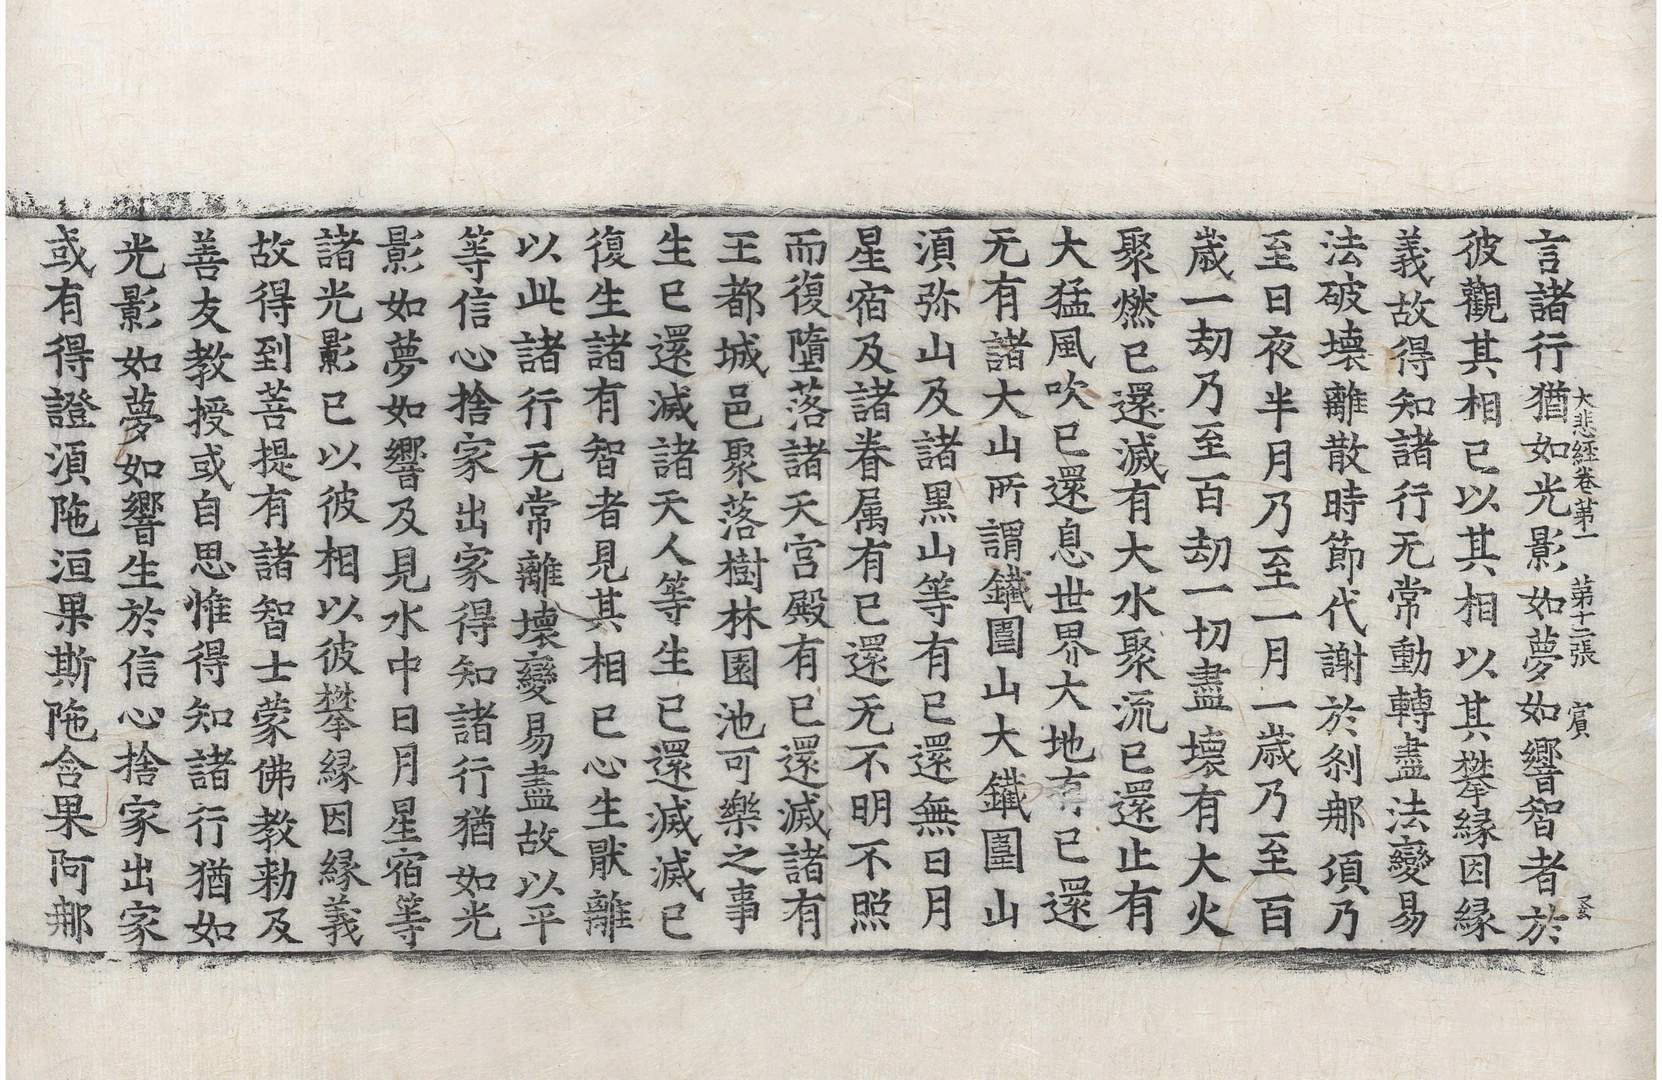 大悲經卷第一　第十二張　賓
言諸行猶如光影如夢如響智者於
彼觀其相已以其相以其攀縁因縁
義故得知諸行无常動轉盡法變易
法破壞離散時節代謝於刹那須乃
至日夜半月乃至一月一歲乃至百
歲一劫乃至百劫一切盡壞有大火
聚燃已還滅有大水聚流已還止有
大猛風吹已還息世界大地有已還
无有諸大山所謂鐵圍山大鐵圍山
須弥山及諸黑山等有已還無日月
星宿及諸眷属有已還无不明不照
而復墮落諸天宮殿有已還滅諸有
王都城邑聚落樹林園池可樂之事
生已還滅諸天人等生已還滅滅已
復生諸有智者見其相已心生猒離
以此諸行无常離壞變易盡故以平
等信心捨家出家得知諸行猶如光
影如夢如響及見水中日月星宿等
諸光影已以彼相以彼攀縁因縁義
故得到菩提有諸智士蒙佛教勑及
善友教授或自思惟得知諸行猶如
光影如夢如響生於信心捨家出家
或有得證須陁洹果斯陁含果阿那